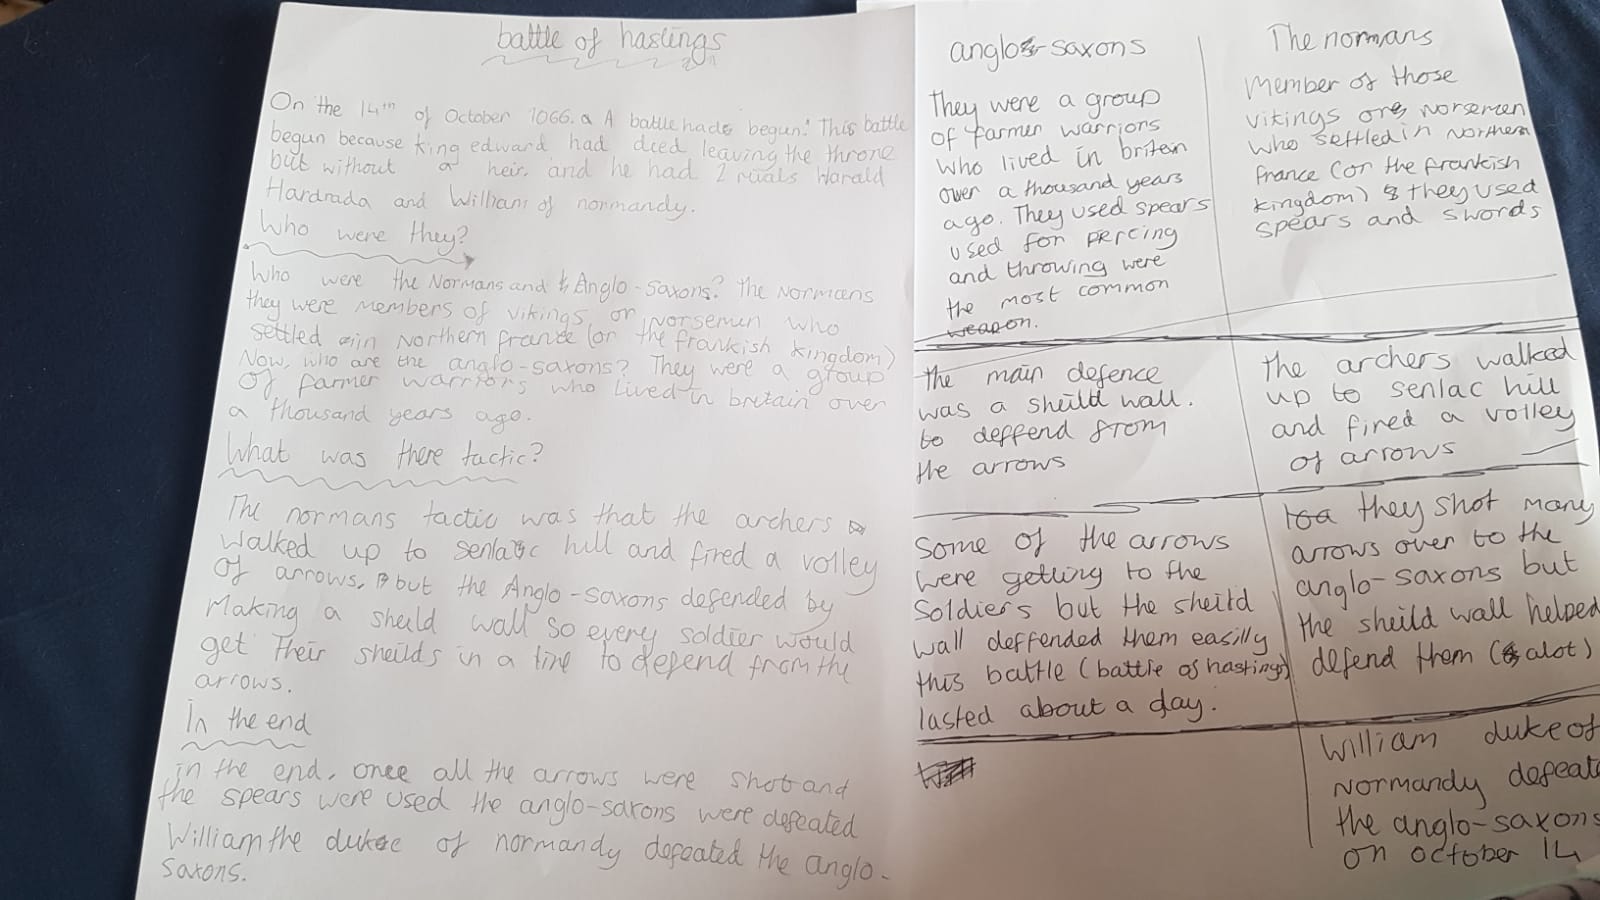 battle of hastings
On the 14th of October 1066. A battle had begun. This battle
begun because king edward had died leaving the throne
but without a heir. and he had 2 rivals Harald
Hardrada and William of normandy.
Who were they?
Who were the Normans and Anglo-saxons? The Normans
they were members of vikings or Norsemen who
settled in Northern france (or the frankish kingdom)
Now, who are the anglo-saxons? They were a group
of farmer warriors who lived in britain over
a thousand years ago.
What was there tactic?
The normans tactic was that the archers
walked up to senlac hill and fired a volley
of arrows, but the Anglo-saxons defended by
Making a sheild wall so every soldier would
get Their sheilds in a line to defend from the
arrows.
In the end
in the end, once all the arrows were shot and
the spears were used the anglo-saxons were defeated
William the duke of normandy defeated the anglo-
saxons.
anglo-saxons
They were a group
of farmer warriors
who lived in britein
over a thousand years
ago. They used spears
used for percing
and throwing were
the most common
weapon.
The main defence
was a sheild wall.
to deffend from
the arrows
Some of the arrows
were getting to the
soldiers but the sheild
wall deffended them easilly
this battle (battle of hastings)
lasted about a day.
The normans
Member of those
vikings or norsemen
who settled in northern
france (or the frankish
kingdom) they used
spears and swords
the archers walked
up to senlac hill
and fired a volley
of arrows
they shot many
arrows over to the
anglo-saxons but
the sheild wall helped
defend them (alot)
William duke of
normandy defeat
the anglo-saxons
on october 14